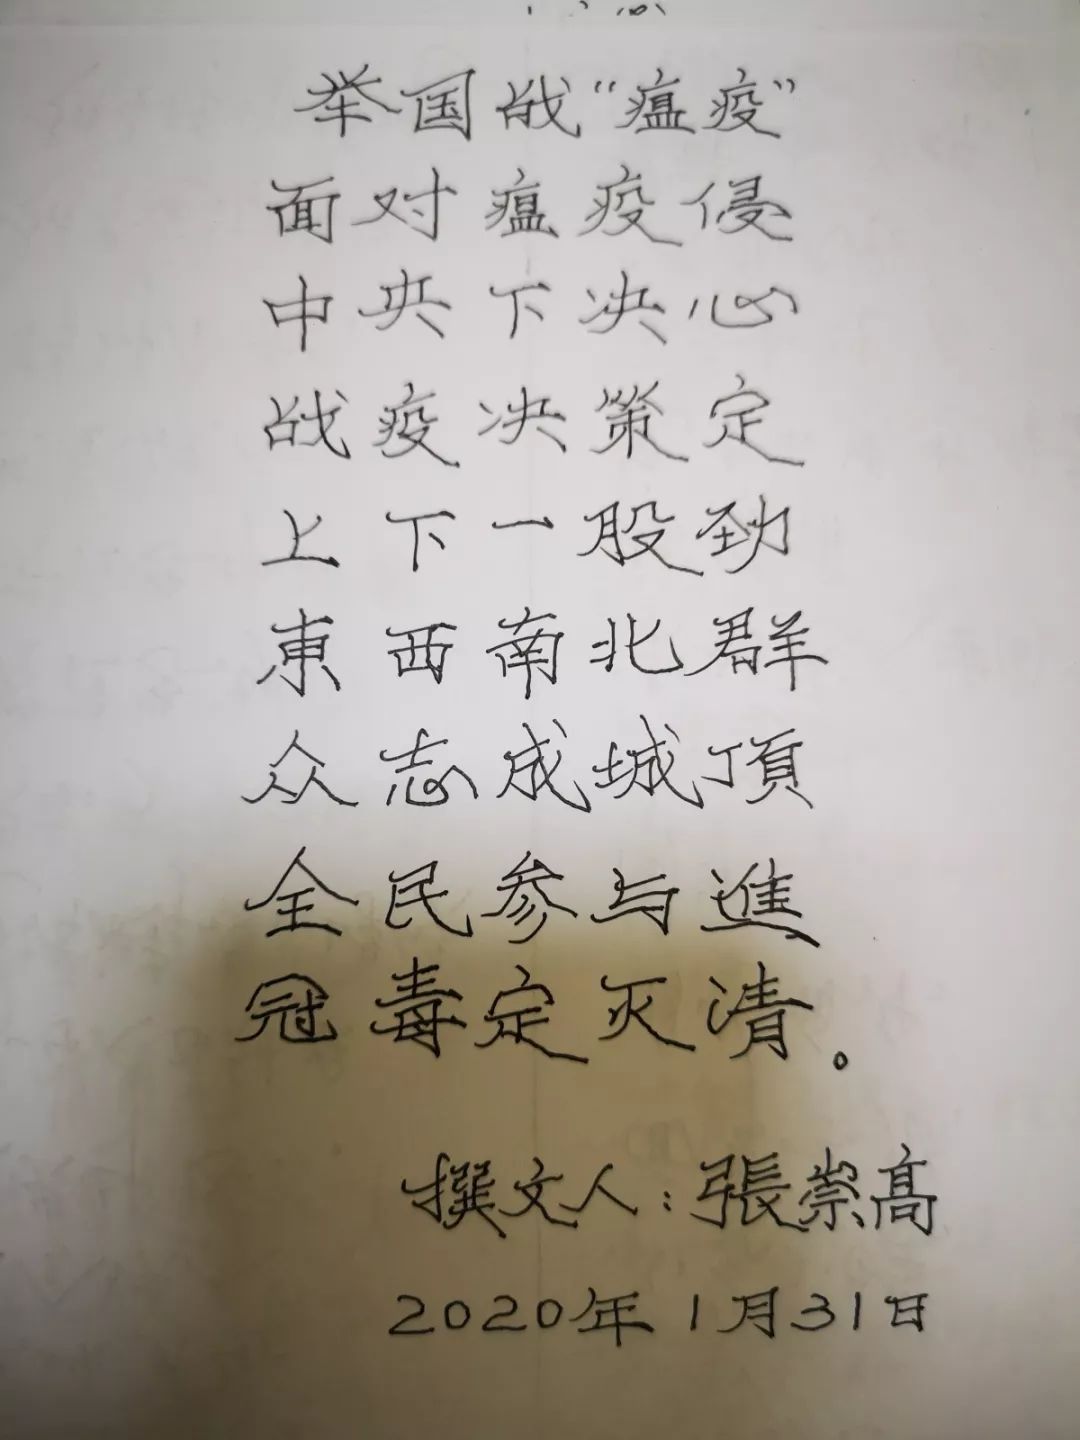 举国战“瘟疫”
面对瘟疫侵
中央下决心
战疫决策定
上下一股劲
東西南北群
众志成城頂
全民参与進
冠毒定灭清。
撰文人:張崇高
2020年1月31日